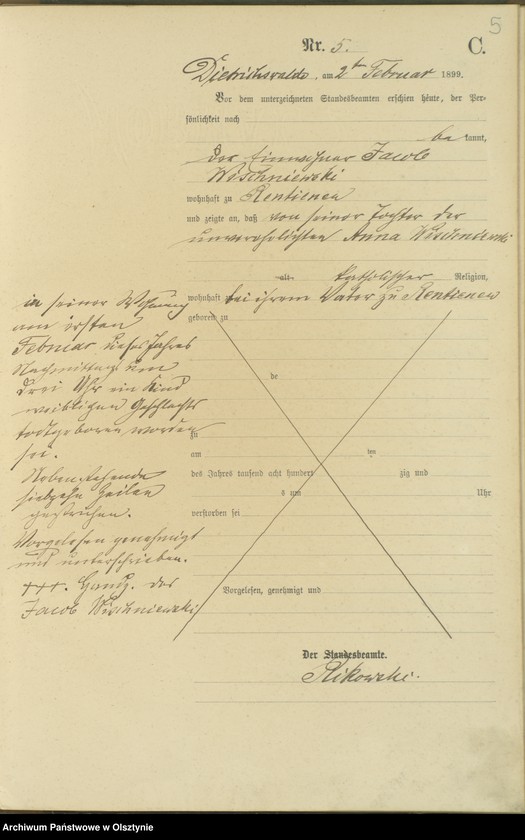 5
Nr. 5. C.
Dietrichswalde, am 2ten Februar 1899.
Vor dem unterzeichneten Standesbeamten erschien heute, der Per-
sönlichkeit nach
be kannt,
der Einwohner Jacob
Wischniewski
wohnhaft zu Rentienen
und zeigte an, daß von seiner Tochter der
unverehelichten Anna Wischniewski
alt katholischer Religion,
wohnhaft bei ihrem Vater zu Rentienen
geboren zu
in seiner Wohnung
am ersten
Februar dieses Jahres
Nachmittags um
drei Uhr ein Kind
weiblichen Geschlechts
todtgeboren worden
sei.
Nebenstehende
siebzehn Zeilen
gestrichen.
Vorgelesen genehmigt
und unterschrieben.
+++. Handz. des
Jacob Wischniewski
de
zu
am den
des Jahres tausend acht hundert zig und
s um Uhr
verstorben sei
Vorgelesen, genehmigt und
Der Standesbeamte.
Rikowski.
Archiwum Państwowe w Olsztynie